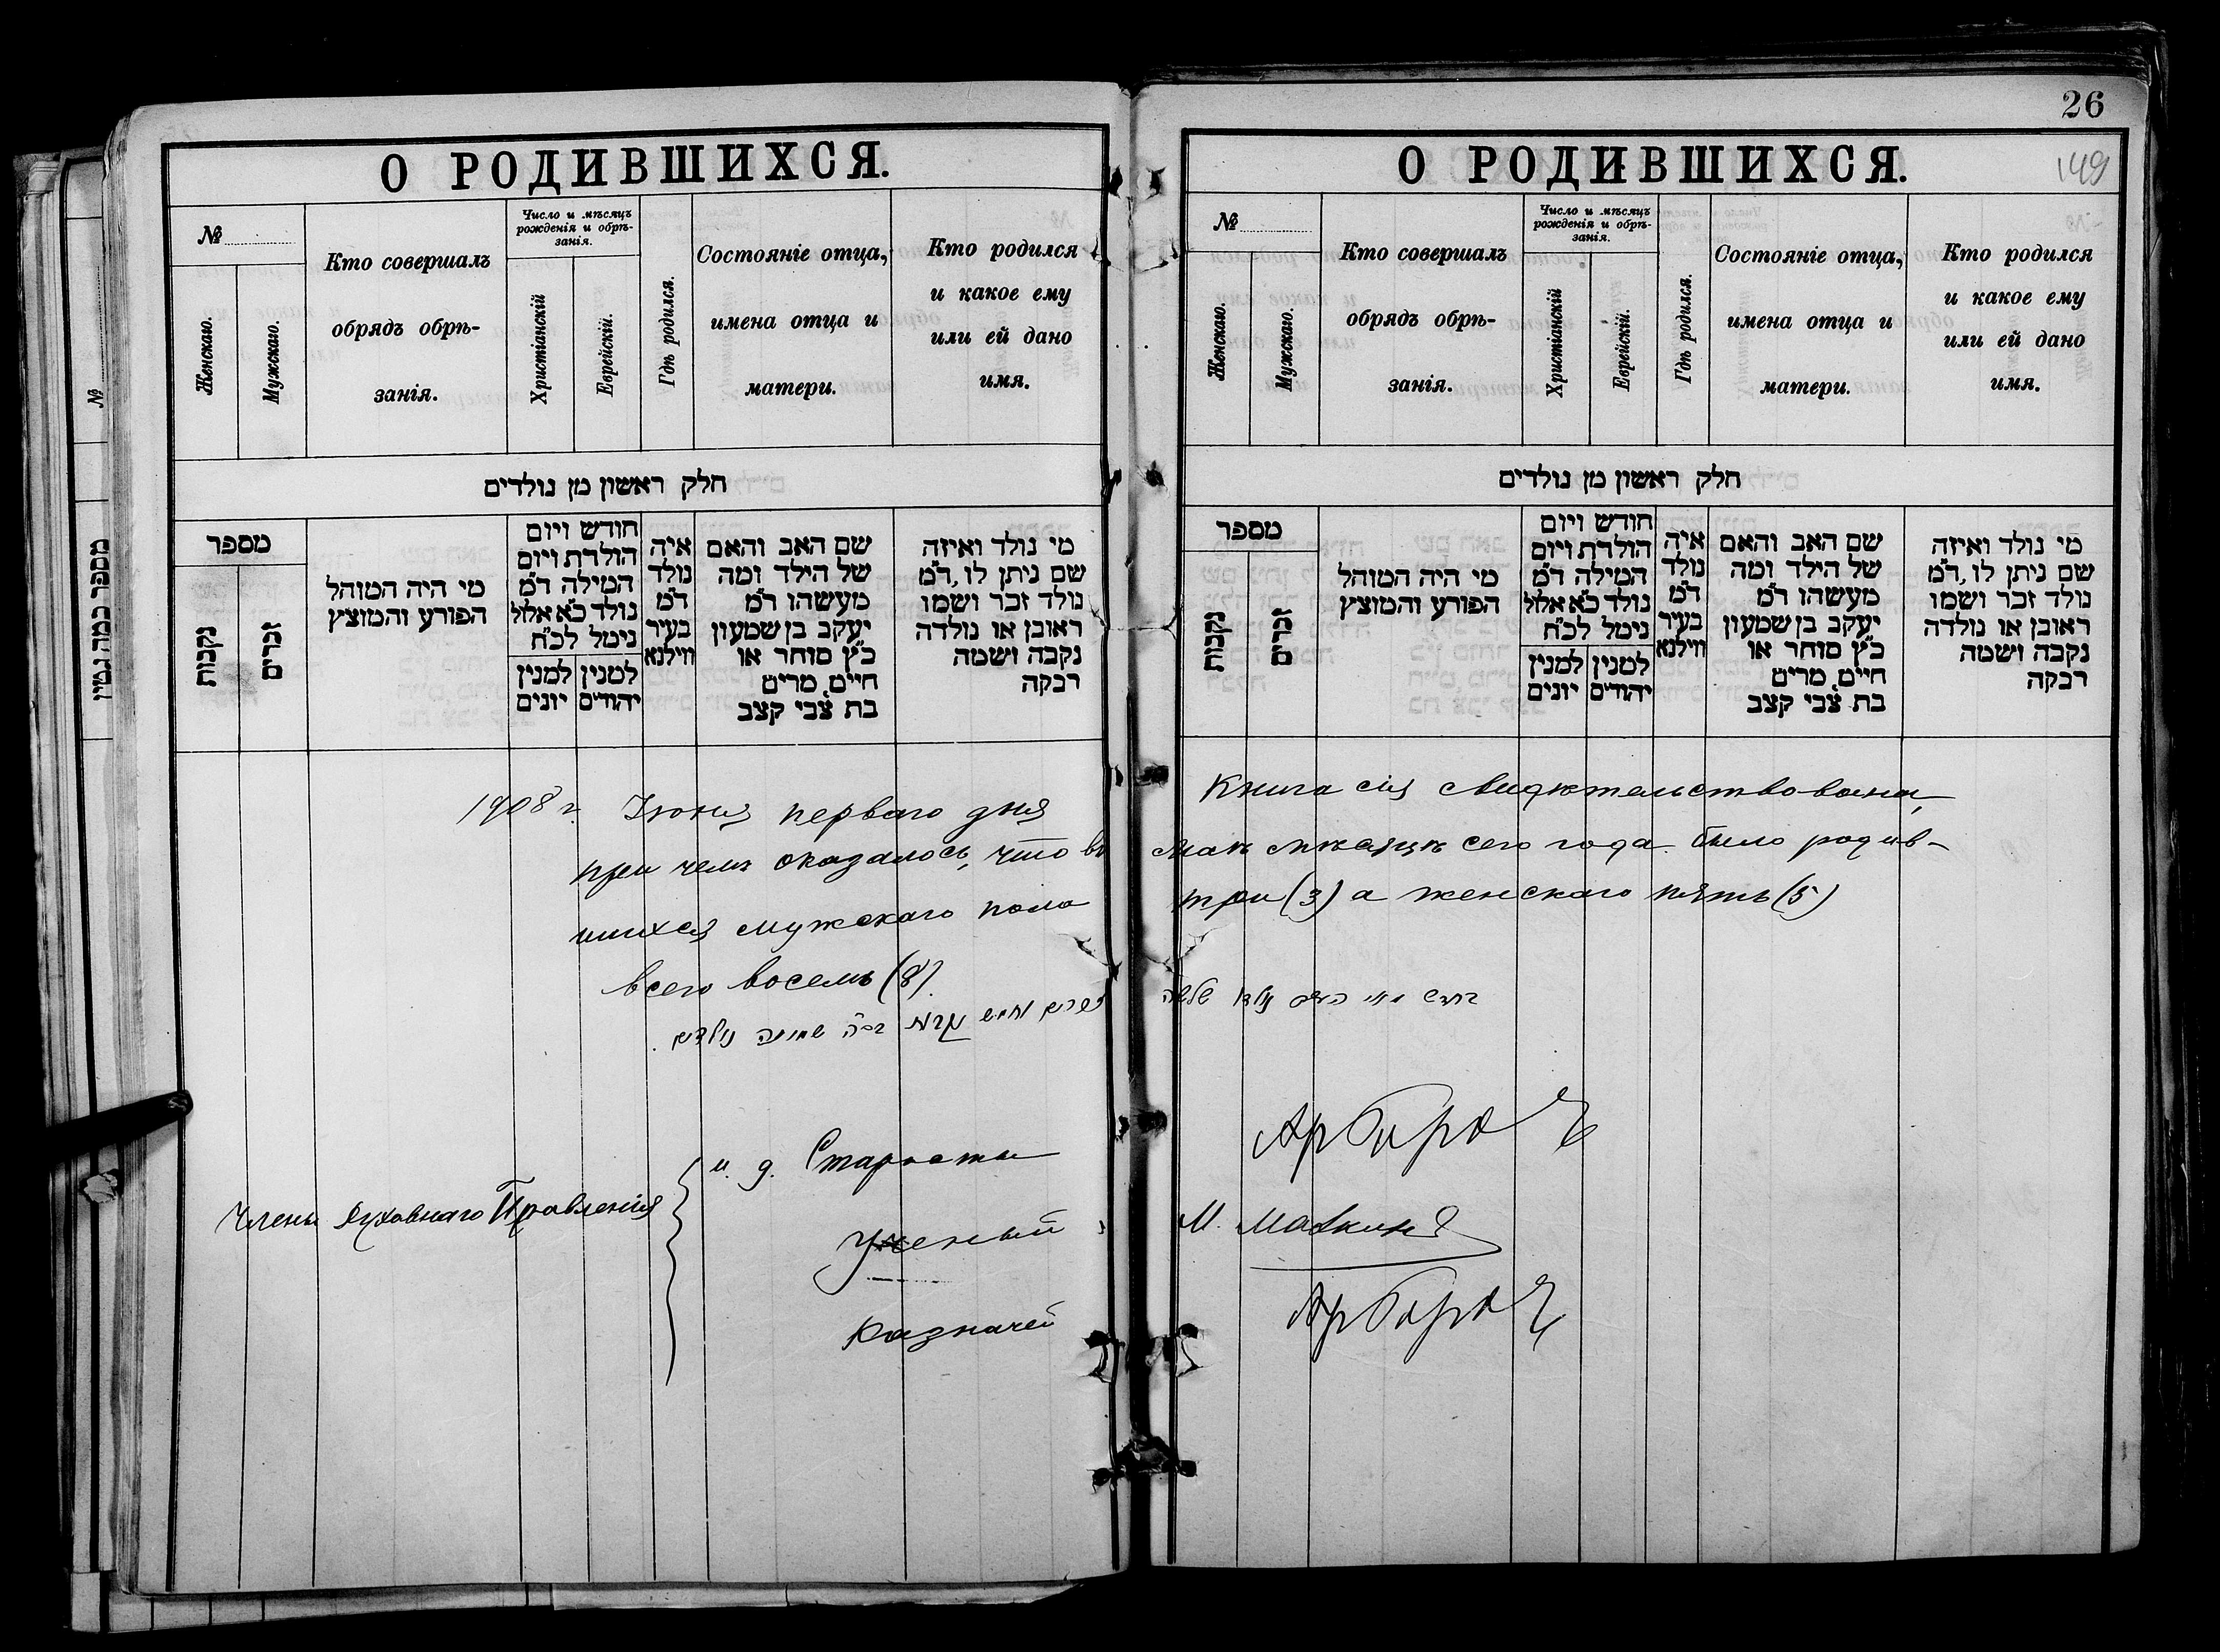 О РОДИВШИХСЯ.
№
Женскаго.
Мужскаго.
Кто совершалъ
обрядъ обрѣ-
занія.
Число и мѣсяцъ
рожденія и обрѣ-
занія.
Христіанскій
Еврейскій.
Гдѣ родился.
Состояніе отца,
имена отца и
матери.
Кто родился
и какое ему
или ей дано
имя.
חלק ראשון מן נולדים
מספר
נקבות
זכרים
מי היה המוהל
הפורע והמוצץ
חודש ויום
הולדת ויום
המילה ד"מ
נולד כ"א אלול
נימל לכ"ח
למנין
יהודים
למנין
יונים
איה
נולד
ד"מ
בעיר
ווילנא
שם האב והאם
של הילד ומה
מעשהו ד"מ
יעקב בן שמעון
כ"ץ סוחר או
חיים, מרים
בת צבי קצב
מי נולד ואיזה
שם ניתן לו, ד"מ
נולד זכר ושמו
ראובן או נולדה
נקבה ושמה
רבקה
26
149
О РОДИВШИХСЯ.
№
Женскаго.
Мужскаго.
Кто совершалъ
обрядъ обрѣ-
занія.
Число и мѣсяцъ
рожденія и обрѣ-
занія.
Христіанскій
Еврейскій.
Гдѣ родился.
Состояніе отца,
имена отца и
матери.
Кто родился
и какое ему
или ей дано
имя.
חלק ראשון מן נולדים
מספר
נקבות
זכרים
מי היה המוהל
הפורע והמוצץ
חודש ויום
הולדת ויום
המילה ד"מ
נולד כ"א אלול
נימל לכ"ח
למנין
יהודים
למנין
יונים
איה
נולד
ד"מ
בעיר
ווילנא
שם האב והאם
של הילד ומה
מעשהו ד"מ
יעקב בן שמעון
כ"ץ סוחר או
חיים, מרים
בת צבי קצב
מי נולד ואיזה
שם ניתן לו, ד"מ
נולד זכר ושמו
ראובן או נולדה
נקבה ושמה
רבקה
1908 г. Іюня перваго дня Книга сія свидѣтельствована,
при чемъ оказалось, что въ маѣ мѣсяцѣ сего года было родив-
шихся мужскаго пола три (3) а женскаго пять (5)
всего восемь (8).
Члены Духовнаго Правленія
и. д. Старосты
Ученый М. Малкинъ
Казначей
№
מספר כמה גטין